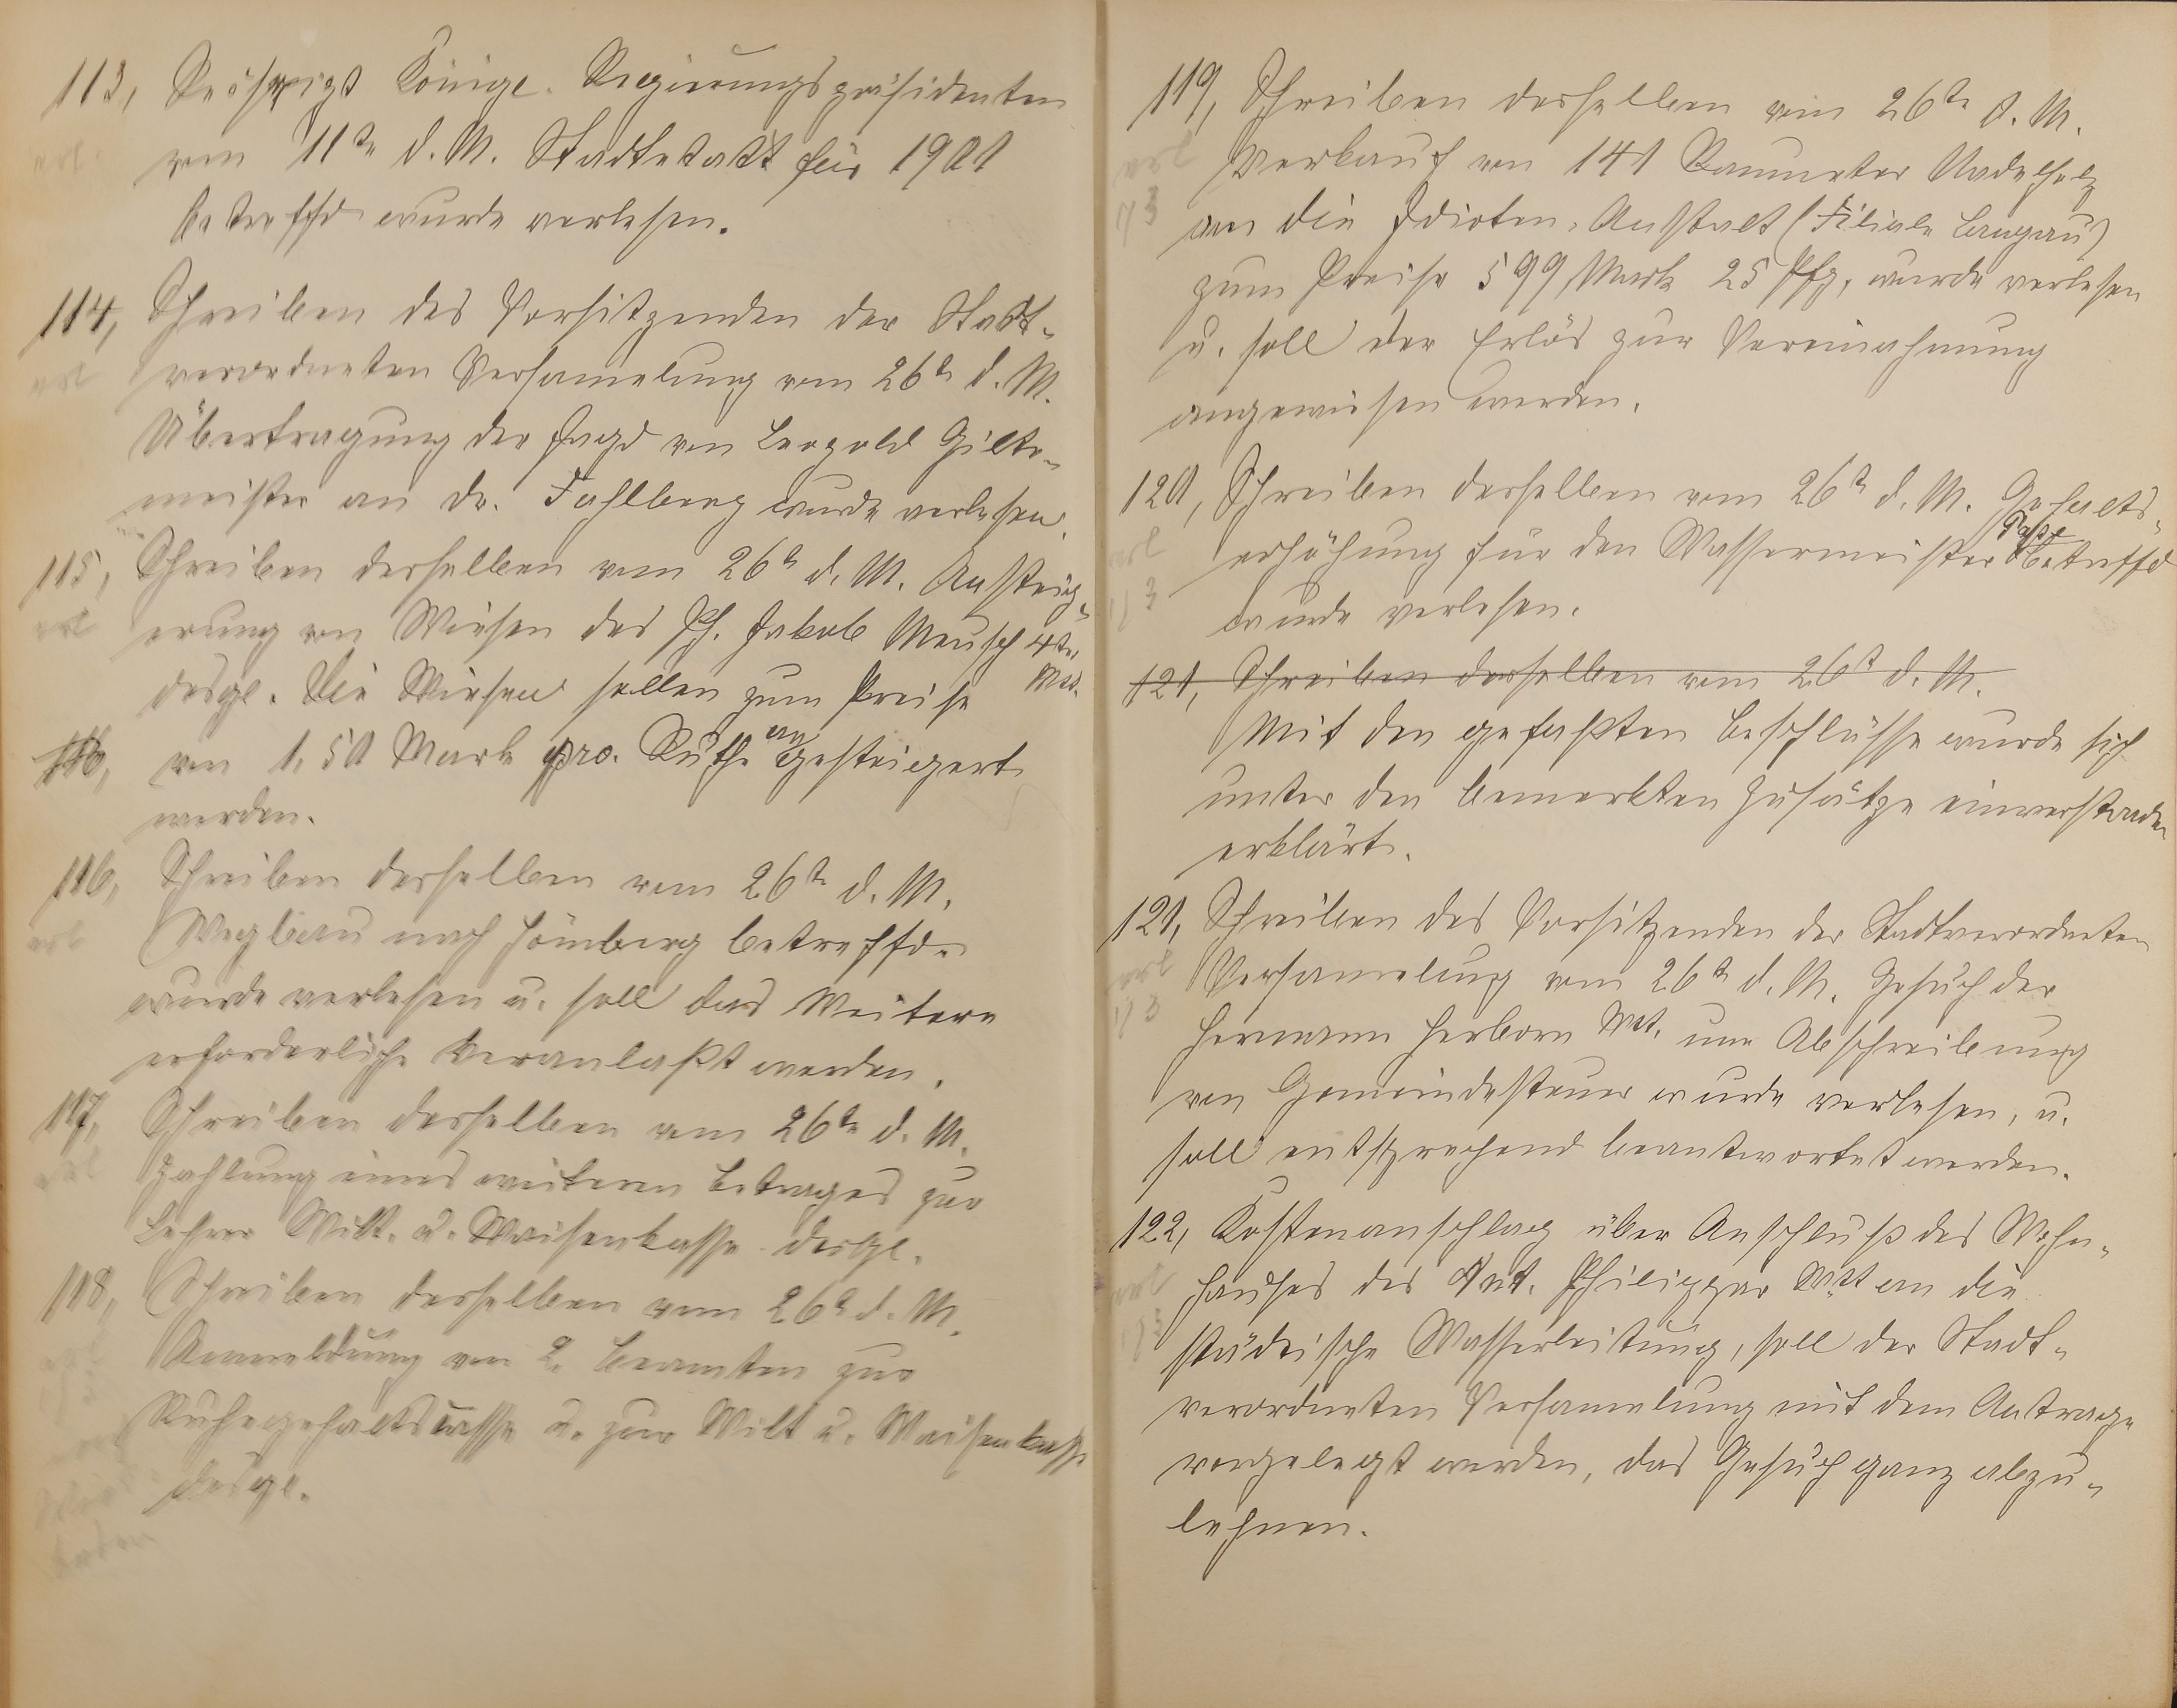 113, Königl. Regierungspräsidenten
vom 11ten d. M. Stadtetatt für 1901
betreffd. wurde verlesen.
114, Schreiben des Vorsitzenden der Stadt-
erl verordneten Versamelung vom 26ten d. M.
Übertragung der Jagd von Leopold Gilte-
meister an Dr. Fahlberg wurde verlesen.
115, Schreiben desselben vom 26ten d. M. Ansteig-
erl erung von Wiesen des Ph. Jakob Meusch 4ter
desgl. Die Wiesen sollen zum Preise Wtw.
116, von 1,50 Mark pro. Ruthe angesteigert
werden.
116, Schreiben desselben vom 26ten d. M.
erl Wegbau nach Hömberg betreffd.
wurde verlesen u. soll das Weitere
erforderliche veranlaßt werden.
117, Schreiben desselben vom 26ten d. M.
erl Zahlung eines weiteren Betrages zur
Lehrer Witt. u. Waisenkasse desgl.
118, Schreiben desselben vom 26ten d. M.
Anmeldung von 2. Beamten zur
Ruhegehaltscasse u. zur Witt u. Waisenkasse
desgl.
119, Schreiben desselben vom 26ten d. M.
erl Verkauf von 141 Raumeter Nadelholz
1/3 an die Idioten-Anstalt (Filiale Langau)
zum Preise 599 Mark 25 Pfg, wurde verlesen
u. soll der Erlös zur Vereinahmung
angewiesen werden.
120, Schreiben desselben vom 26ten d. M. Gehalts-
erl erhöhung für den Wassermeister betreffd
1/3 wurde verlesen.
121, Schreiben desselben vom 26ten d. M.
Mit den gefaßten Beschlüsse wurde sich
unter den bemerkten Zusätze einverstanden
erklärt.
121, Schreiben des Vorsitzenden der Stadtverordneten
erl Versamelung vom 26ten d. M. Gesuch der
1/3 Hermann Herborn Wtt. um Abschreibung
von Gemeindesteuer wurde verlesen, u.
soll entsprechend beantwortet werden.
122, Kostenanschlag über Anschluß des Wohn-
erl hauses des Ant. Philippar Wtt an die
1/3 städtische Wasserleitung, soll der Stadt-
verordneten Versamelung mit dem Antrage
vorgelegt werden, das Gesuch ganz abzu-
lehnen.